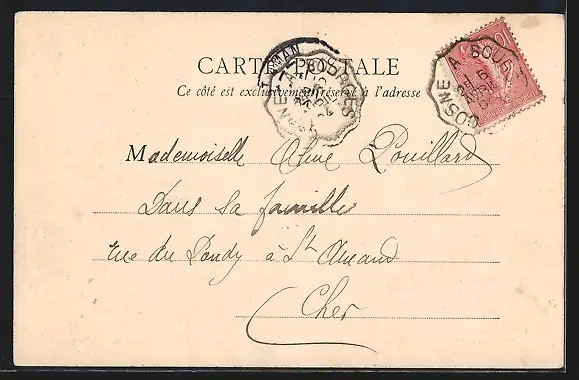 CARTE POSTALE
Ce côté est exclusivement réservé à l'adresse
COSNE A BOURGES
COSNE A BOUR
Mademoiselle Aline Pouillard
Dans sa famille
rue du Pondy à St Amand
Cher